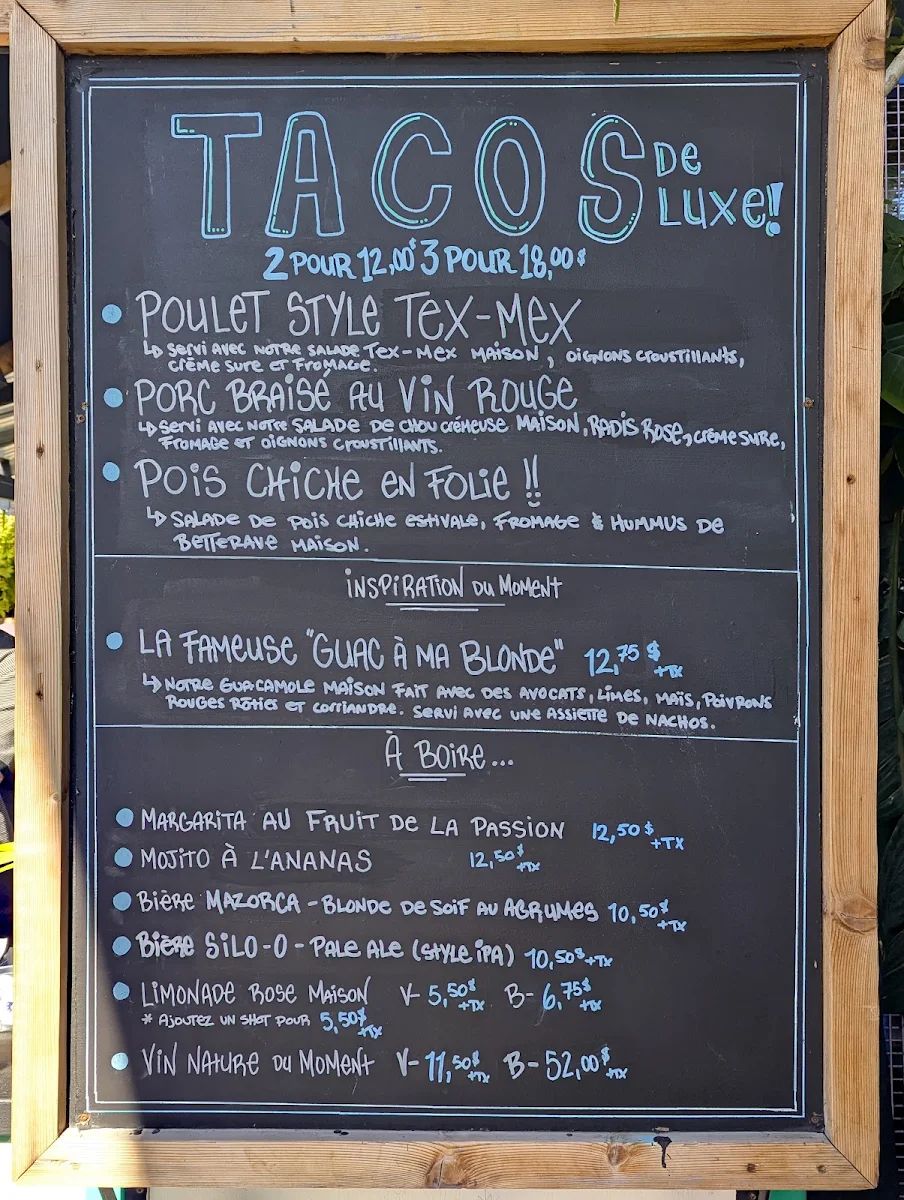 TACOS DE LUXE!
2 POUR 12,00$ 3 POUR 18,00$
POULET STYLE TEX-MEX
↳ SERVI AVEC NOTRE SALADE TEX-MEX MAISON, OIGNONS CROUSTILLANTS,
CRÈME SURE ET FROMAGE.
PORC BRAISÉ AU VIN ROUGE
↳ SERVI AVEC NOTRE SALADE DE CHOU CRÉMEUSE MAISON, RADIS ROSE, CRÈME SURE,
FROMAGE ET OIGNONS CROUSTILLANTS.
POIS CHICHE EN FOLIE !!
↳ SALADE DE POIS CHICHE ESTIVALE, FROMAGE & HUMMUS DE
BETTERAVE MAISON.
INSPIRATION DU MOMENT
LA FAMEUSE "GUAC À MA BLONDE" 12,75$ +TX
↳ NOTRE GUACAMOLE MAISON FAIT AVEC DES AVOCATS, LIMES, MAÏS, POIVRONS
ROUGES RÔTIES ET CORRIANDRE. SERVI AVEC UNE ASSIETTE DE NACHOS.
À BOIRE...
MARGARITA AU FRUIT DE LA PASSION 12,50$ +TX
MOJITO À L'ANANAS 12,50$ +TX
BIÈRE MAZORCA - BLONDE DE SOIF AU AGRUMES 10,50$ +TX
BIÈRE SILO-O - PALE ALE (STYLE IPA) 10,50$ +TX
LIMONADE ROSE MAISON V- 5,50$ +TX B- 6,75$ +TX
* AJOUTEZ UN SHOT POUR 5,50$ +TX
VIN NATURE DU MOMENT V- 11,50$ +TX B- 52,00$ +TX